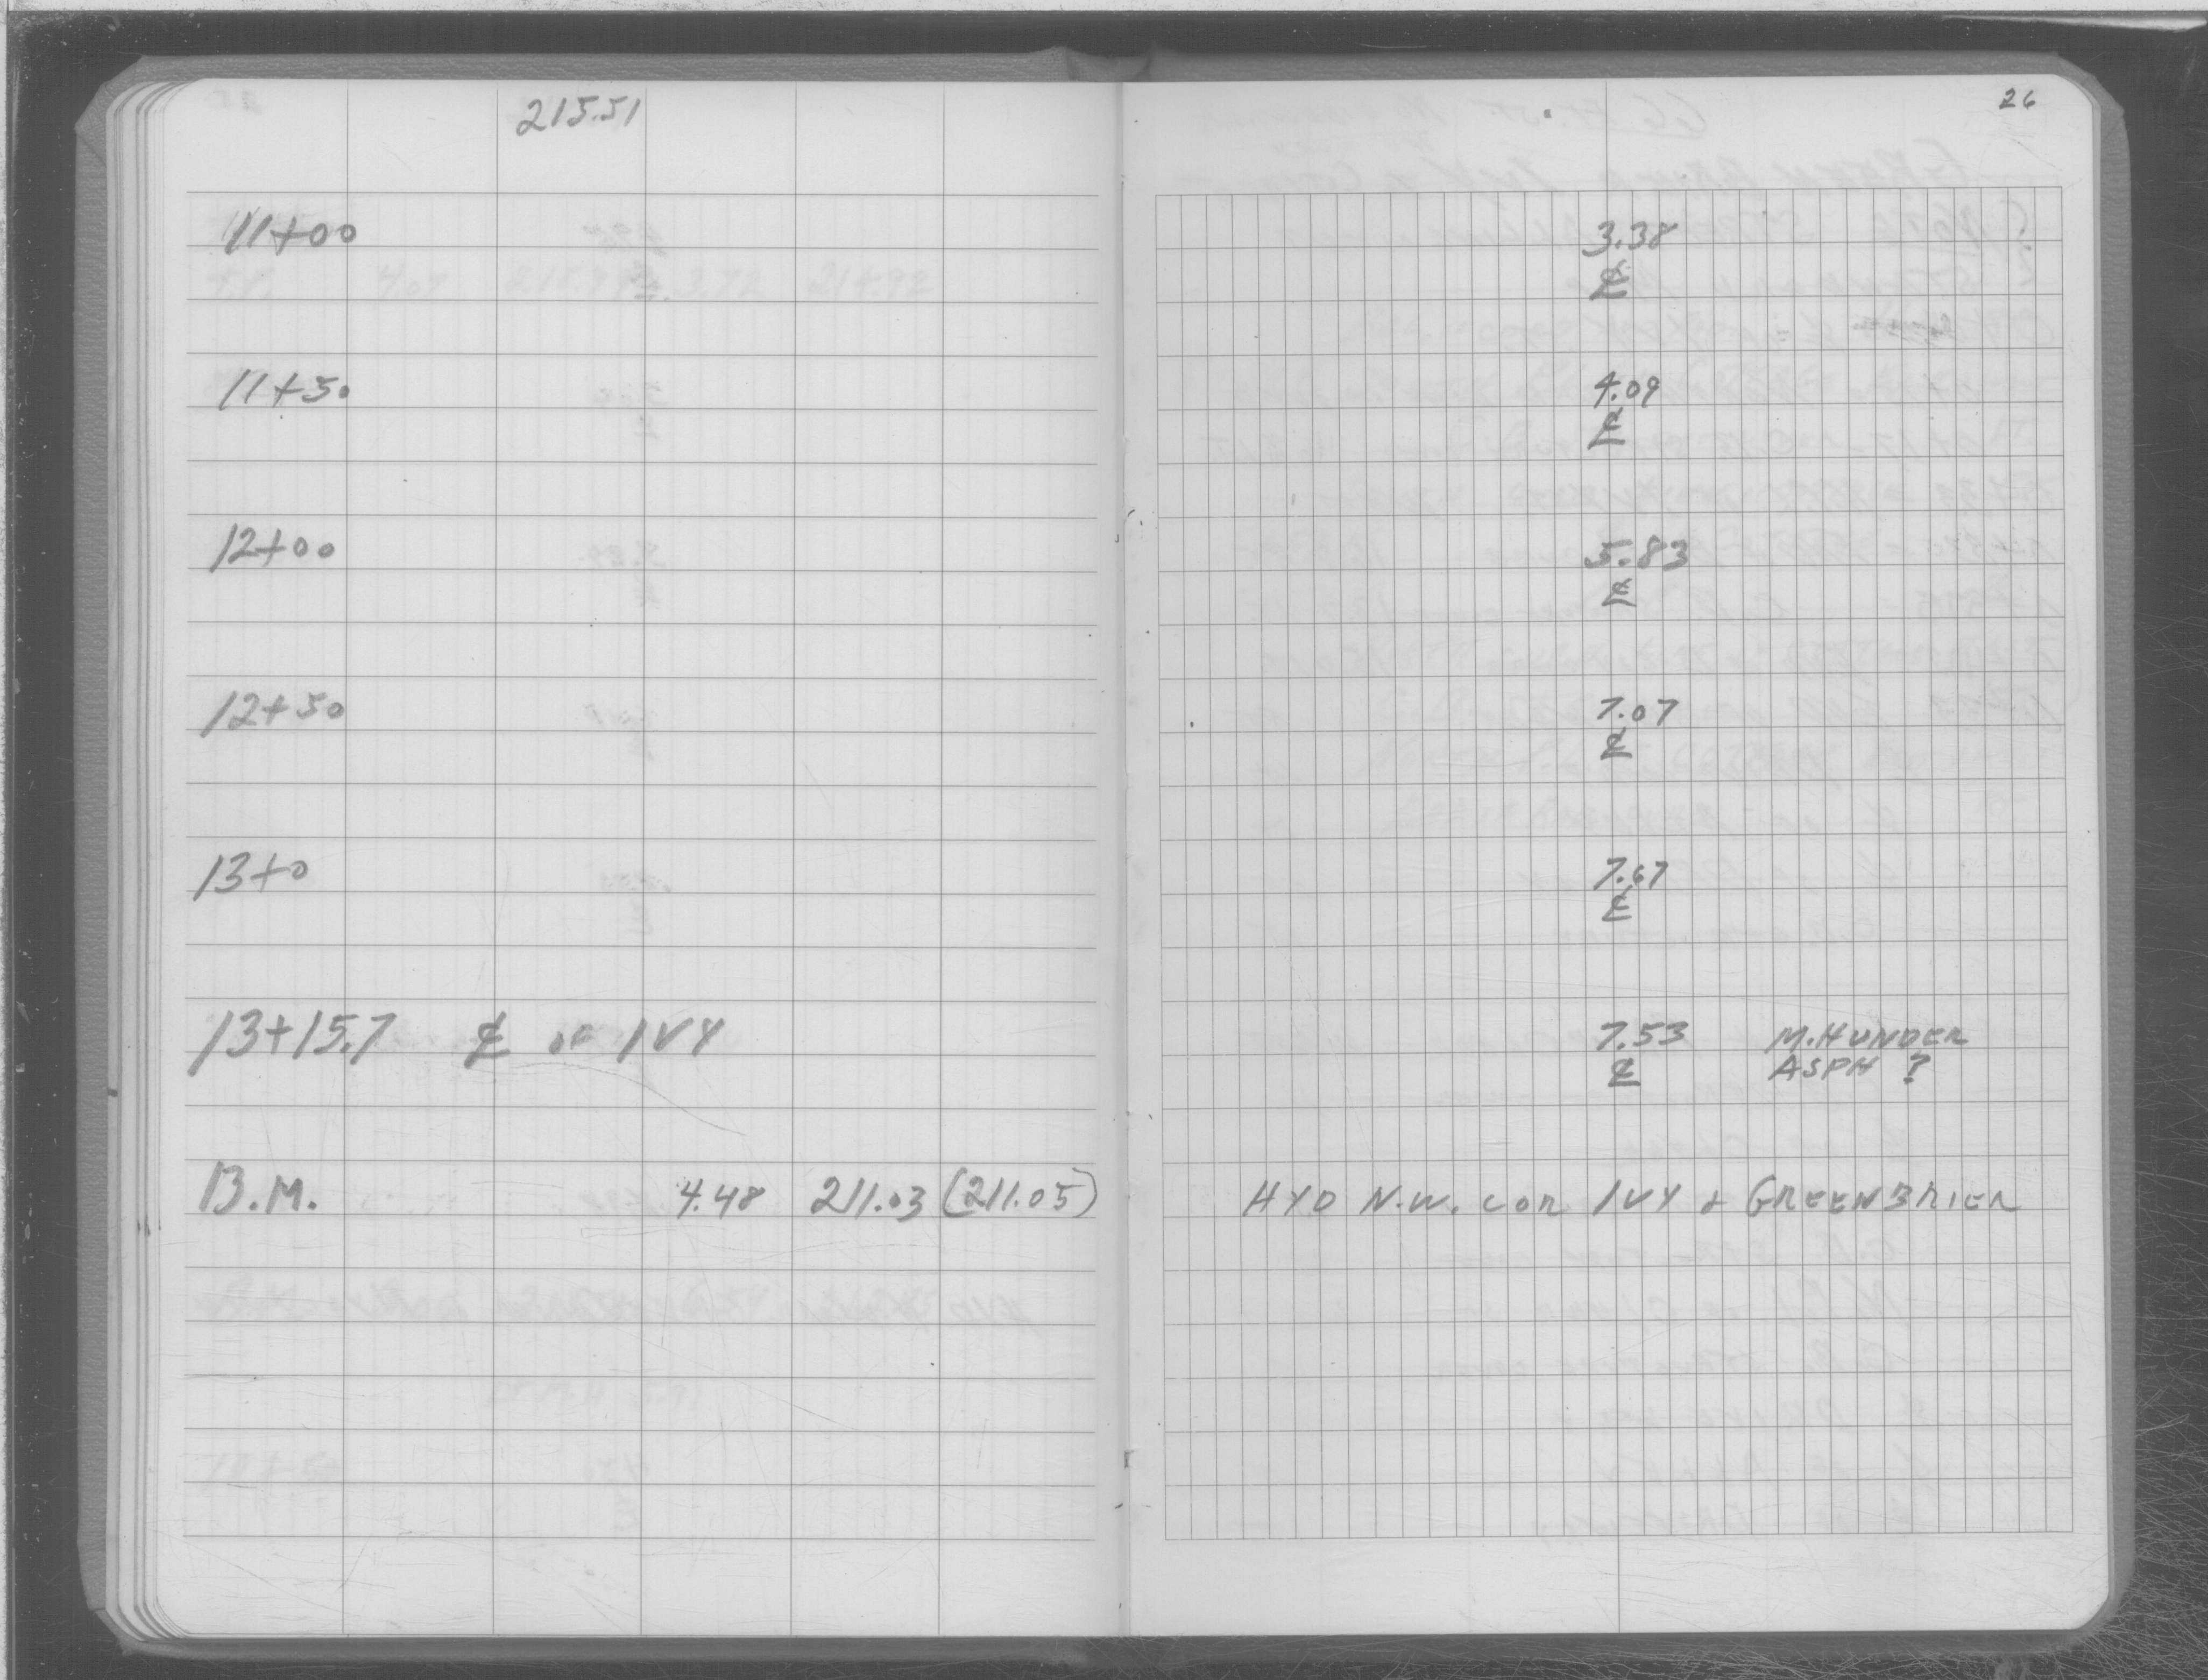 215.51
26
11+00 3.38
℄
11+50 4.09
℄
12+00 5.83
℄
12+50 7.07
℄
13+0 7.67
℄
13+15.7 ℄ OF IVY 7.53 M.HUNDER
℄ ASPH ?
B.M. 4.48 211.03 (211.05) HYD N.W. COR IVY & GREENBRIER